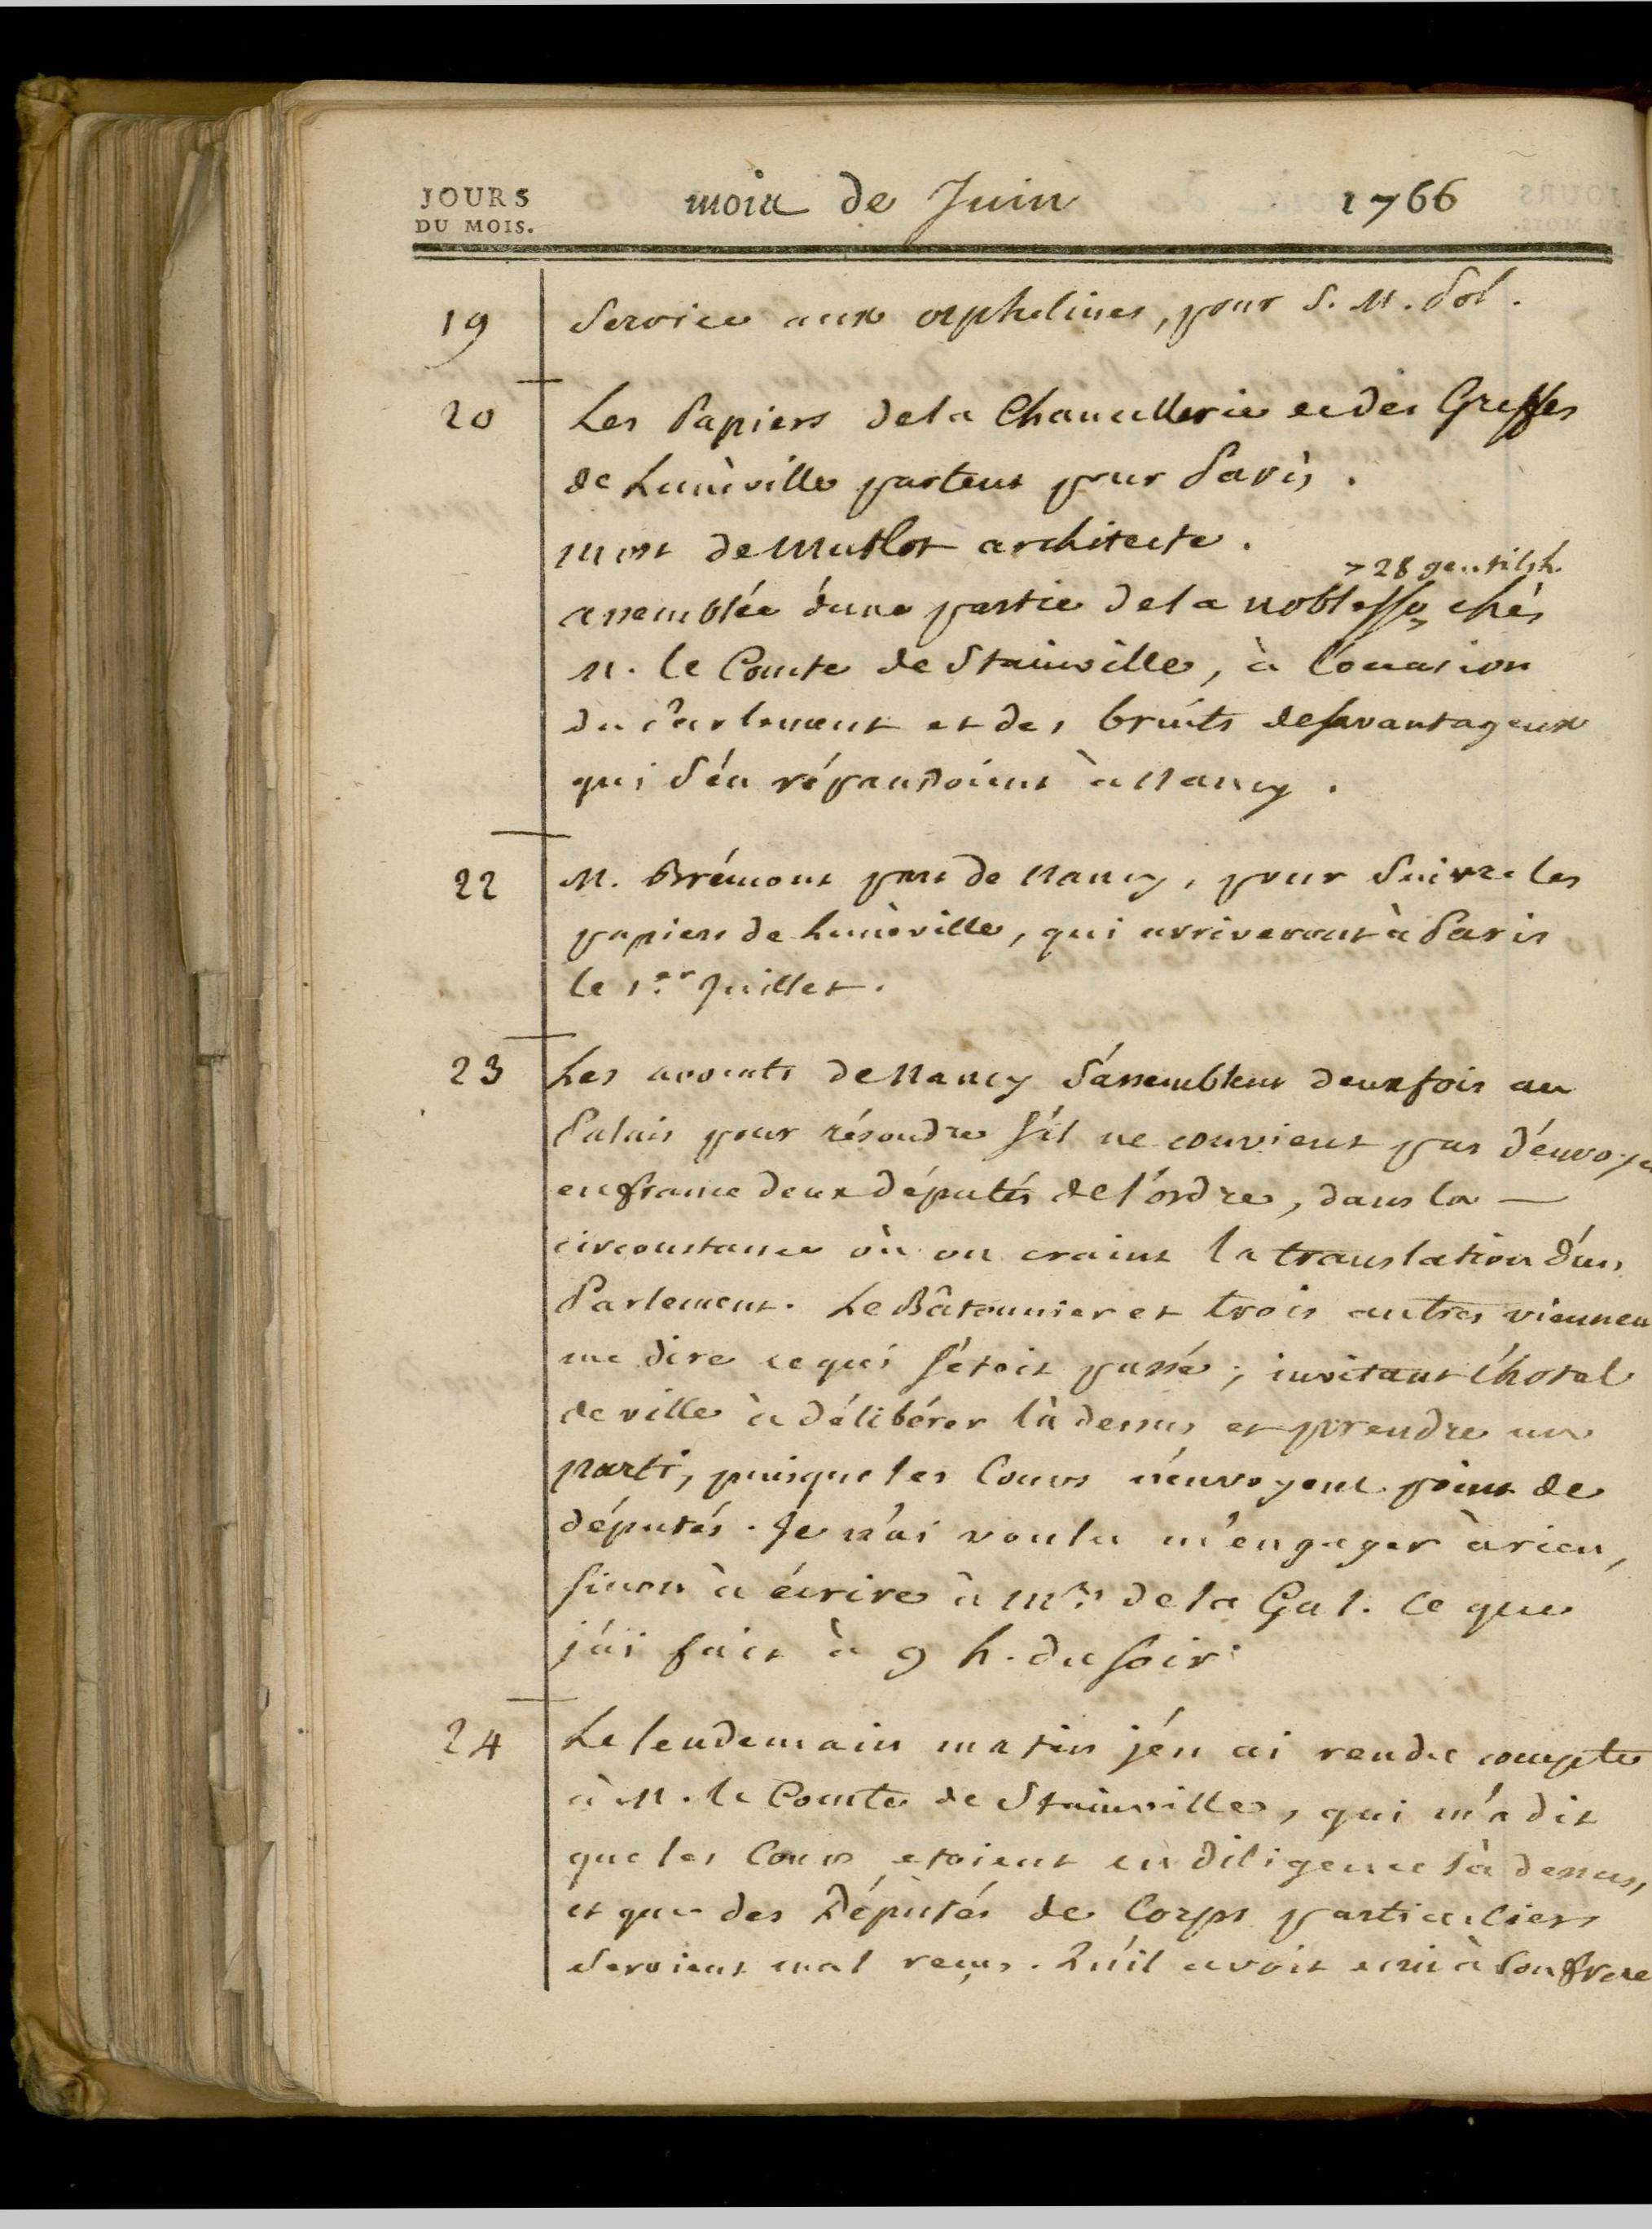 JOURS
DU MOIS.
mois de Juin 1766
19 Service aux orphelines, pour S. M. Pol.
20 Les Papiers de la Chancellerie et des Greffes
de Lunéville partent pour Paris.
mort de Mutlot architecte.
> 28 gentilsh.
assemblée d'une partie de la noblesse, chés
M. le Comte de Stainville, à l'occasion
du Parlement et des bruits desavantageux
qui s'en répandoient à Nancy.
22 M. Brémont part de Nancy, pour suivre les
papiers de Lunéville, qui arriveront à Paris
le 1.er Juillet.
23 Les avocats de Nancy s'assemblent deux fois au
Palais pour résoudre s'il ne convient pas d'envoye
en france deux députés de l'ordre, dans la —
circonstance où on craint la translation d'un
Parlement. Le Bâtonnier et trois autres viennen
me dire ce qui s'étoit passé; invitant l'hotel
de ville à délibérer là dessus et prendre un
parti, puisque les Cours n'envoyent point de
députés. Je n'ai voulu m'engager à rien,
sinon à écrire à Mr. de la Gal. ce que
j'ai fait à 9 h. du soir
24 Le lendemain matin j'en ai rendu compte
à M. le Comte de Stainville, qui m'a dit
que les Cours etoient en diligence là dessus,
et que des Députés de Corps particuliers
seroient mal reçus. Qu'il avoit écrit à son frere